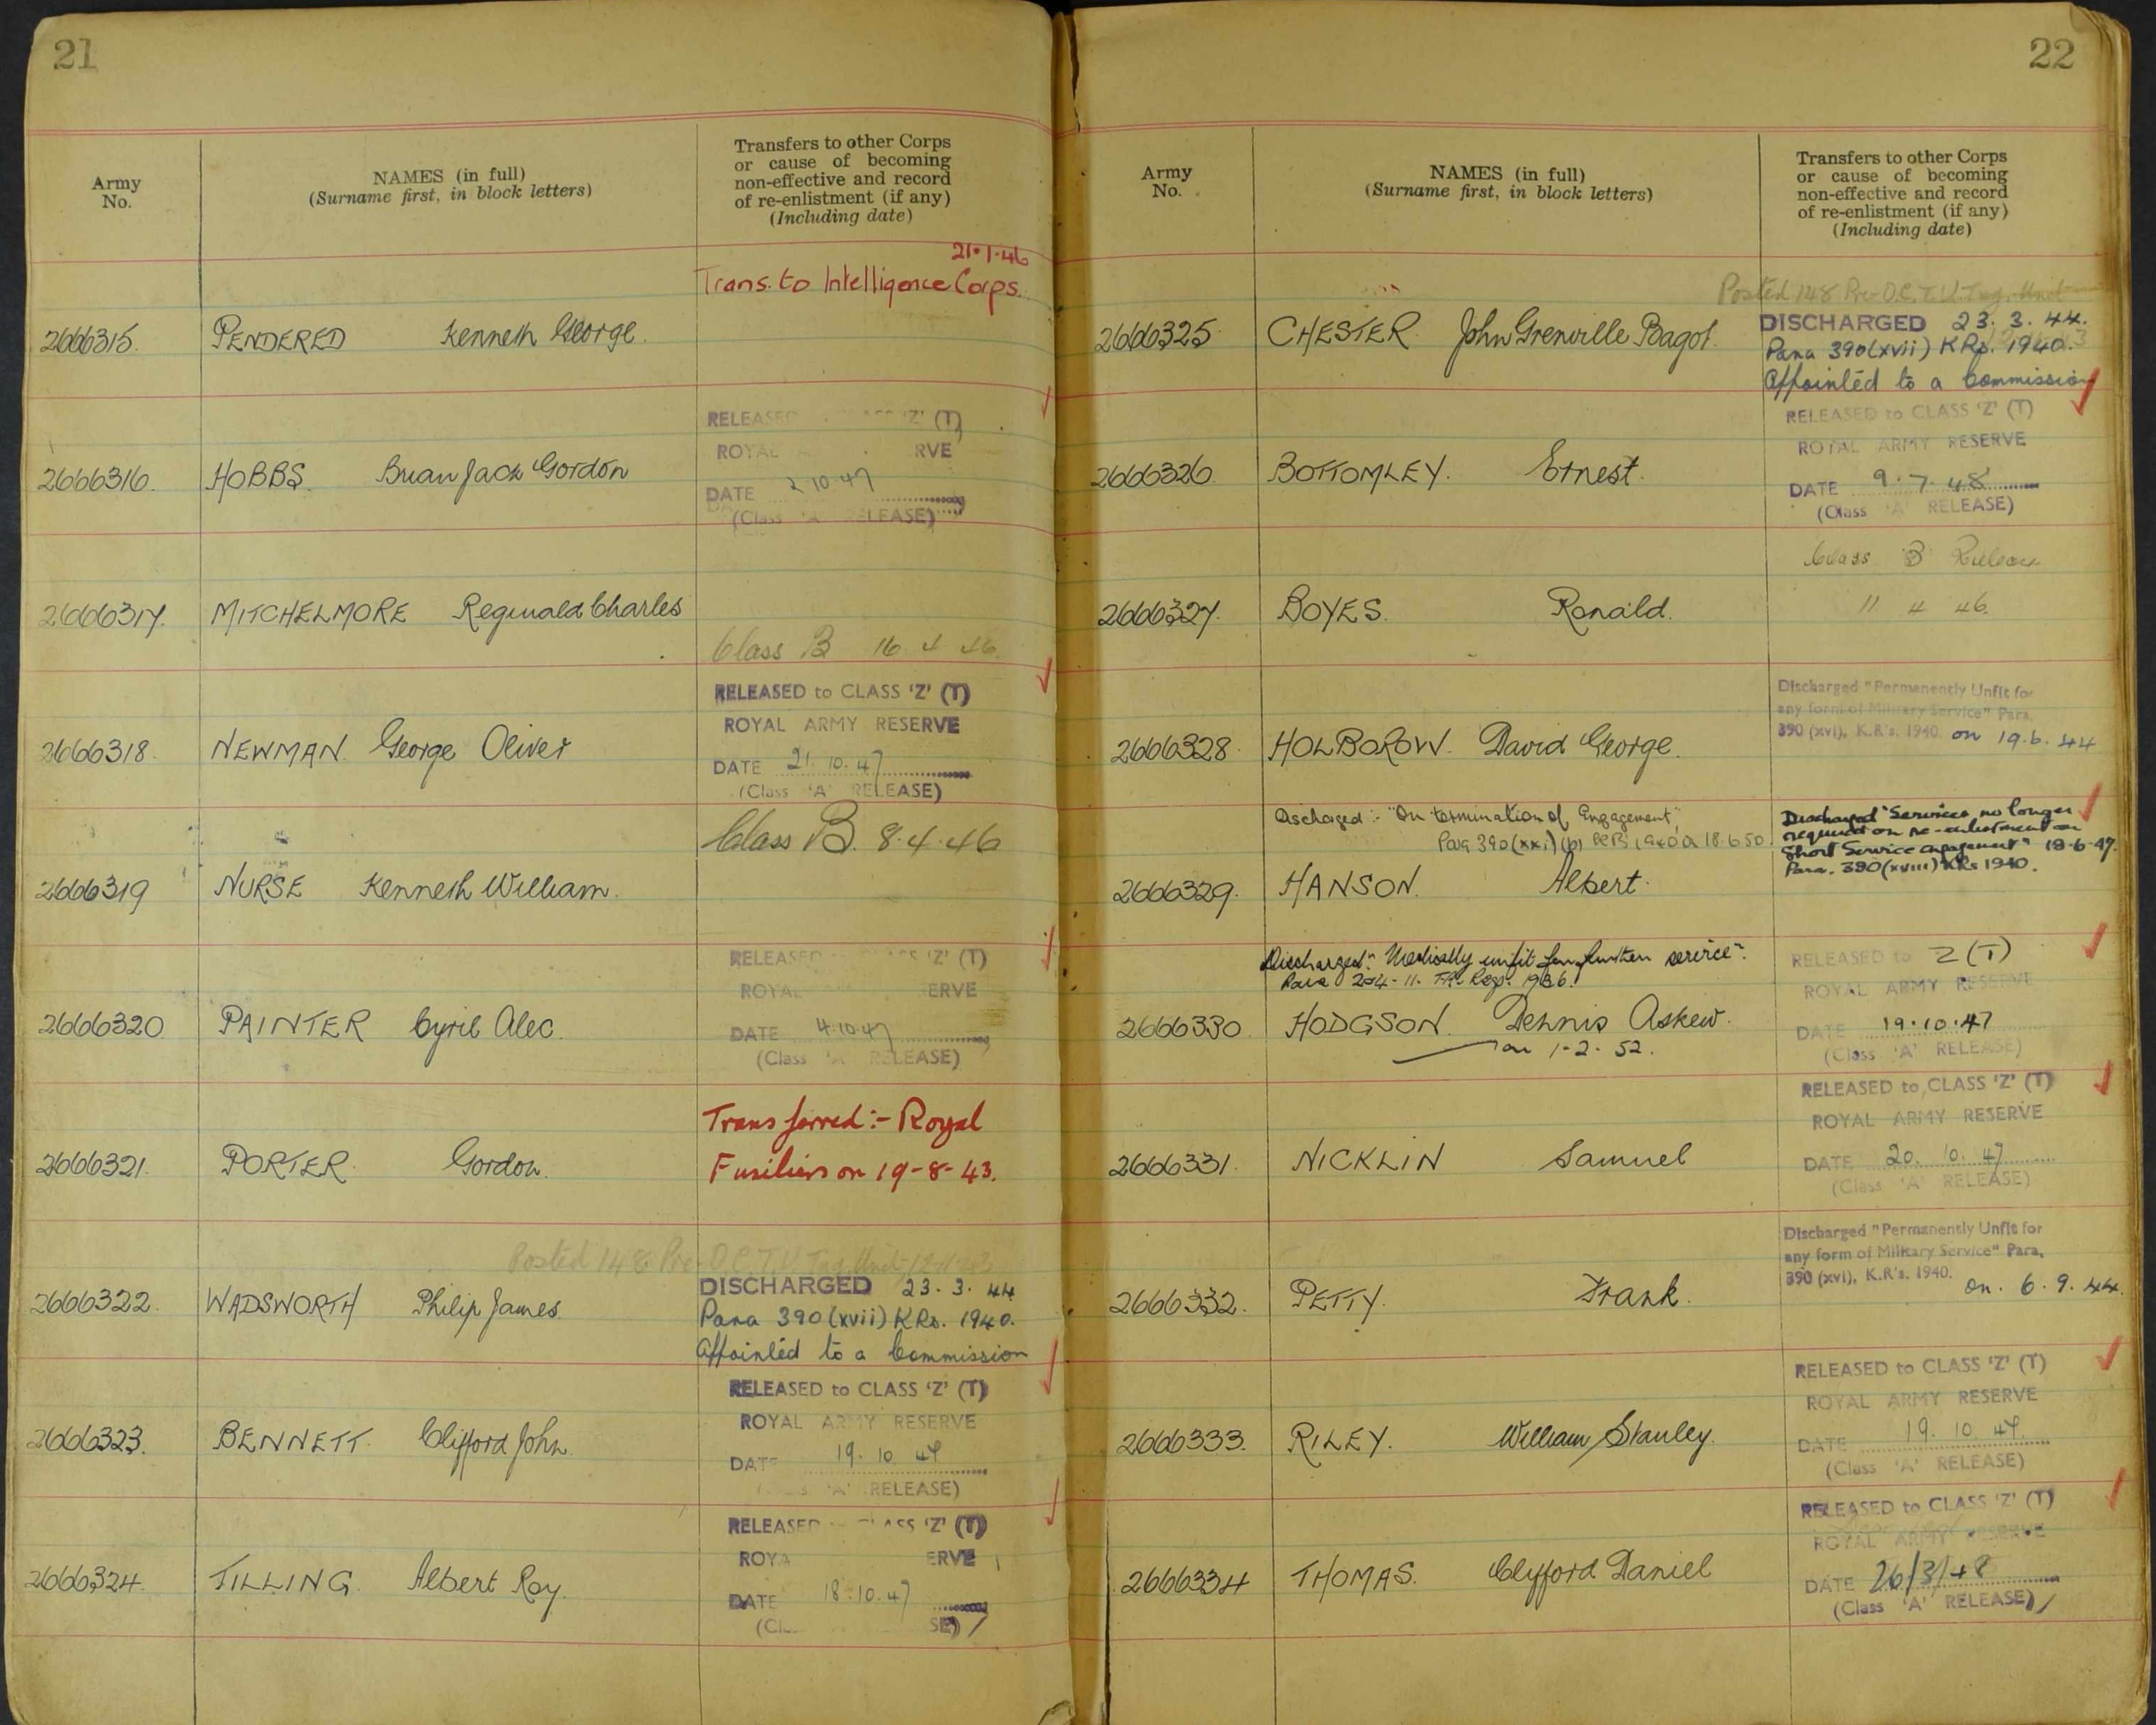 21
Army
No.
NAMES (in full)
(Surname first, in block letters)
Transfers to other Corps
or cause of becoming
non-effective and record
of re-enlistment (if any)
(Including date)
21.1.46
Trans. to Intelligence Corps.
2666315. PENDERED Kenneth George.
RELEASED 'Z' (T)
ROYAL RVE
2666316. HOBBS. Brian Jack Gordon
DATE 2 10 47
(Class 'A' RELEASE)
2666317. MITCHELMORE Reginald Charles
Class B 16 4 46.
RELEASED to CLASS 'Z' (T)
ROYAL ARMY RESERVE
2666318. NEWMAN. George Oliver
DATE 21.10.47
(Class 'A' RELEASE)
Class B. 8.4.46
2666319 NURSE Kenneth William.
RELEASED 'Z' (T)
ROYAL ERVE
2666320 PAINTER Cyril Alec.
DATE 4.10.47
(Class 'A' RELEASE)
Transferred:- Royal
Fusiliers on 19-8-43.
2666321. PORTER. Gordon.
Posted 148 Pre-O.C.T.U. Trg. Unit
DISCHARGED 23.3.44
2666322. WADSWORTH Philip James.
Para 390 (xvii) KRs. 1940.
Appointed to a Commission
RELEASED to CLASS 'Z' (T)
ROYAL ARMY RESERVE
2666323. BENNETT. Clifford John.
DATE 19.10.47
'A' RELEASE)
RELEASED CLASS 'Z' (T)
ROYA ERVE
2666324. TILLING. Albert Roy.
DATE 18.10.47
(Cl SE)
22
Army
No.
NAMES (in full)
(Surname first, in block letters)
Transfers to other Corps
or cause of becoming
non-effective and record
of re-enlistment (if any)
(Including date)
Posted 148 Pre-O.C.T.U. Trg. Unit
DISCHARGED 23.3.44.
2666325. CHESTER. John Grenville Bagot.
Para 390 (xvii) KRs. 1940.
Appointed to a Commission
RELEASED to CLASS 'Z' (T)
ROYAL ARMY RESERVE
2666326. BOTTOMLEY. Ernest.
DATE 9.7.48
(Class 'A' RELEASE)
Class B Release
11 4 46.
2666327. BOYES. Ronald.
Discharged "Permenently Unfit for
any form of Military Service" Para,
390 (xvi), K.R's. 1940. on 19.6.44
2666328. HOLBOROW. David George.
Discharged :- "On termination of Engagement",
Para 390 (xxi) (b) 1940 18.6.50
Discharged "Services no longer
required on re-enlistment on
Short Service engagement" 18-6-47.
Para. 390 (xviii) KRs 1940.
2666329. HANSON. Albert.
Discharged: "Medically unfit for further service".
Para 204-11. T.A. Regs. 1936.
RELEASED to Z (T)
ROYAL ARMY RESERVE
2666330 HODGSON. Dennis Askew.
on 1-2-52.
DATE 19.10.47
(Class 'A' RELEASE)
RELEASED to CLASS 'Z' (T)
ROYAL ARMY RESERVE
2666331. NICKLIN Samuel
DATE 20.10.47
(Class 'A' RELEASE)
Discharged "Permanently Unfit for
any form of Military Service" Para,
390 (xvi), K.R's. 1940.
on. 6.9.44.
2666332. PETTY. Frank.
RELEASED to CLASS 'Z' (T)
ROYAL ARMY RESERVE
2666333. RILEY. William Stanley.
DATE 19.10.47.
(Class 'A' RELEASE)
RELEASED to CLASS 'Z' (T)
ROYAL ARMY RESERVE
2666334 THOMAS. Clifford Daniel
DATE 26/3/48
(Class 'A' RELEASE)